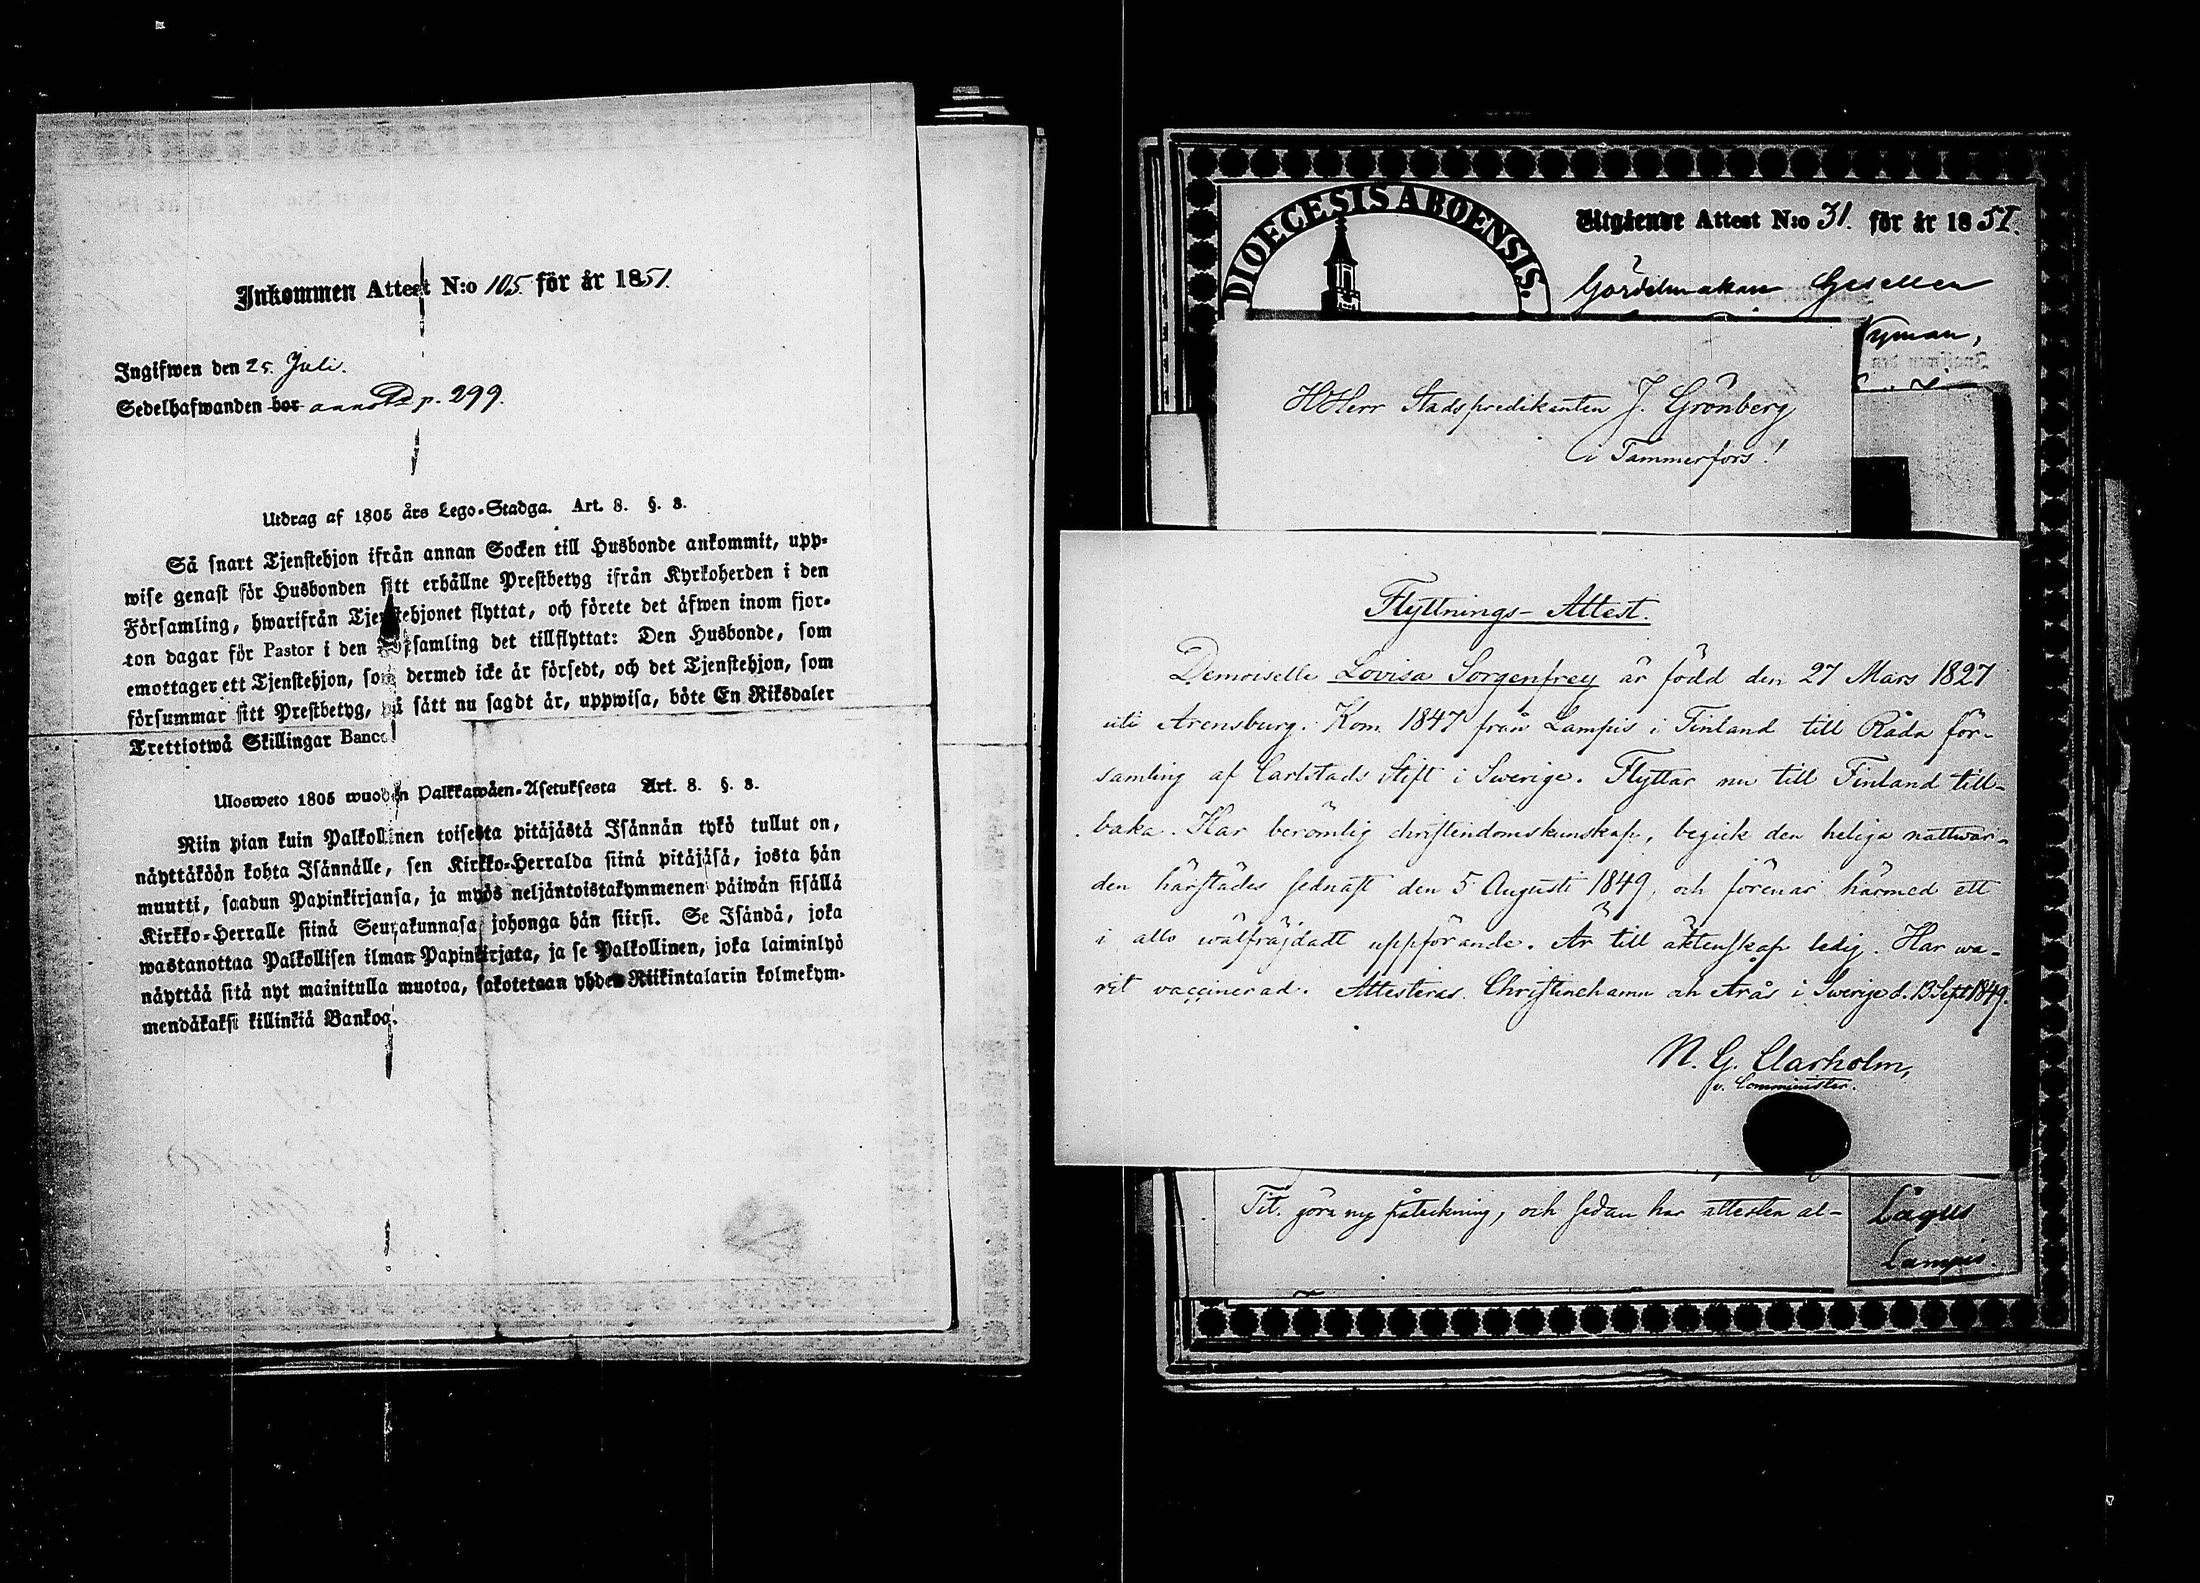 Inkommen Attest N:o 105 för år 1851.
Ingifwen den 25. Juli.
Sedelhafwanden bor annot. p. 299.
Utdrag af 1805 års Lego-Stadga. Art. 8. §. 3.
Så snart Tjenstehjon ifrån annan Socken till Husbonde ankommit, upp-
wise genast för Husbonden sitt erhållne Prestbetyg ifrån Kyrkoherden i den
Församling, hwarifrån Tjenstehjonet flyttat, och förete det äfwen inom fjor-
ton dagar för Pastor i den Församling det tillflyttat: Den Husbonde, som
emottager ett Tjenstehjon, som dermed icke är försedt, och det Tjenstehjon, som
försummar sitt Prestbetyg, på sätt nu sagdt är, uppwisa, böte En Riksdaler
Trettiotwå Skillingar Banco.
Ulosweto 1805 wuoden Palkkawäen-Asetuksesta Art. 8. §. 3.
Niin pian kuin Palkollinen toisesta pitäjästä Isännän tykö tullut on,
näyttäköön kohta Isännälle, sen Kirkko-Herralda siinä pitäjäsä, josta hän
muutti, saadun Papinkirjansa, ja myös neljäntoistakymmenen päiwän sisällä
Kirkko-Herralle siinä Seurakunnasa johonga hän siirsi. Se Isändä, joka
wastanottaa Palkollisen ilman Papinkirjata, ja se Palkollinen, joka laiminlyö
näyttää sitä nyt mainitulla muotoa, sakotetaan yhden Riikintalarin kolmekym-
mendäkaksi killinkiä Bankoa.
DIOECESIS ABOENSIS.
Utgående Attest N:o 31. för år 1851.
Gördelmakare Gesellen
Nyman,
HHerr Stadspredikanten J. Grönberg
i Tammerfors!
Flyttnings-Attest.
Demoiselle Lovisa Sorgenfrey är född den 27 Mars 1827
uti Arensburg. Kom 1847 från Lampis i Finland till Råda för-
samling af Carlstads Stift i Swerige. Flyttar nu till Finland till-
baka. Har berömlig christendomskunskap, begick den heliga nattwar-
den härstädes sednast den 5 Augusti 1849, och förenar härmed ett
i allo wälfräjdadt uppförande. Är till äktenskap ledig. Har wa-
rit vaccinerad. Attesteras. Christinehamn och Arås i Swerige d. 13 Sept 1849.
N. G. Clarholm,
v. Comminister.
Tit. göra ny påteckning, och sedan har attesten al-
Lagus
Lampis.